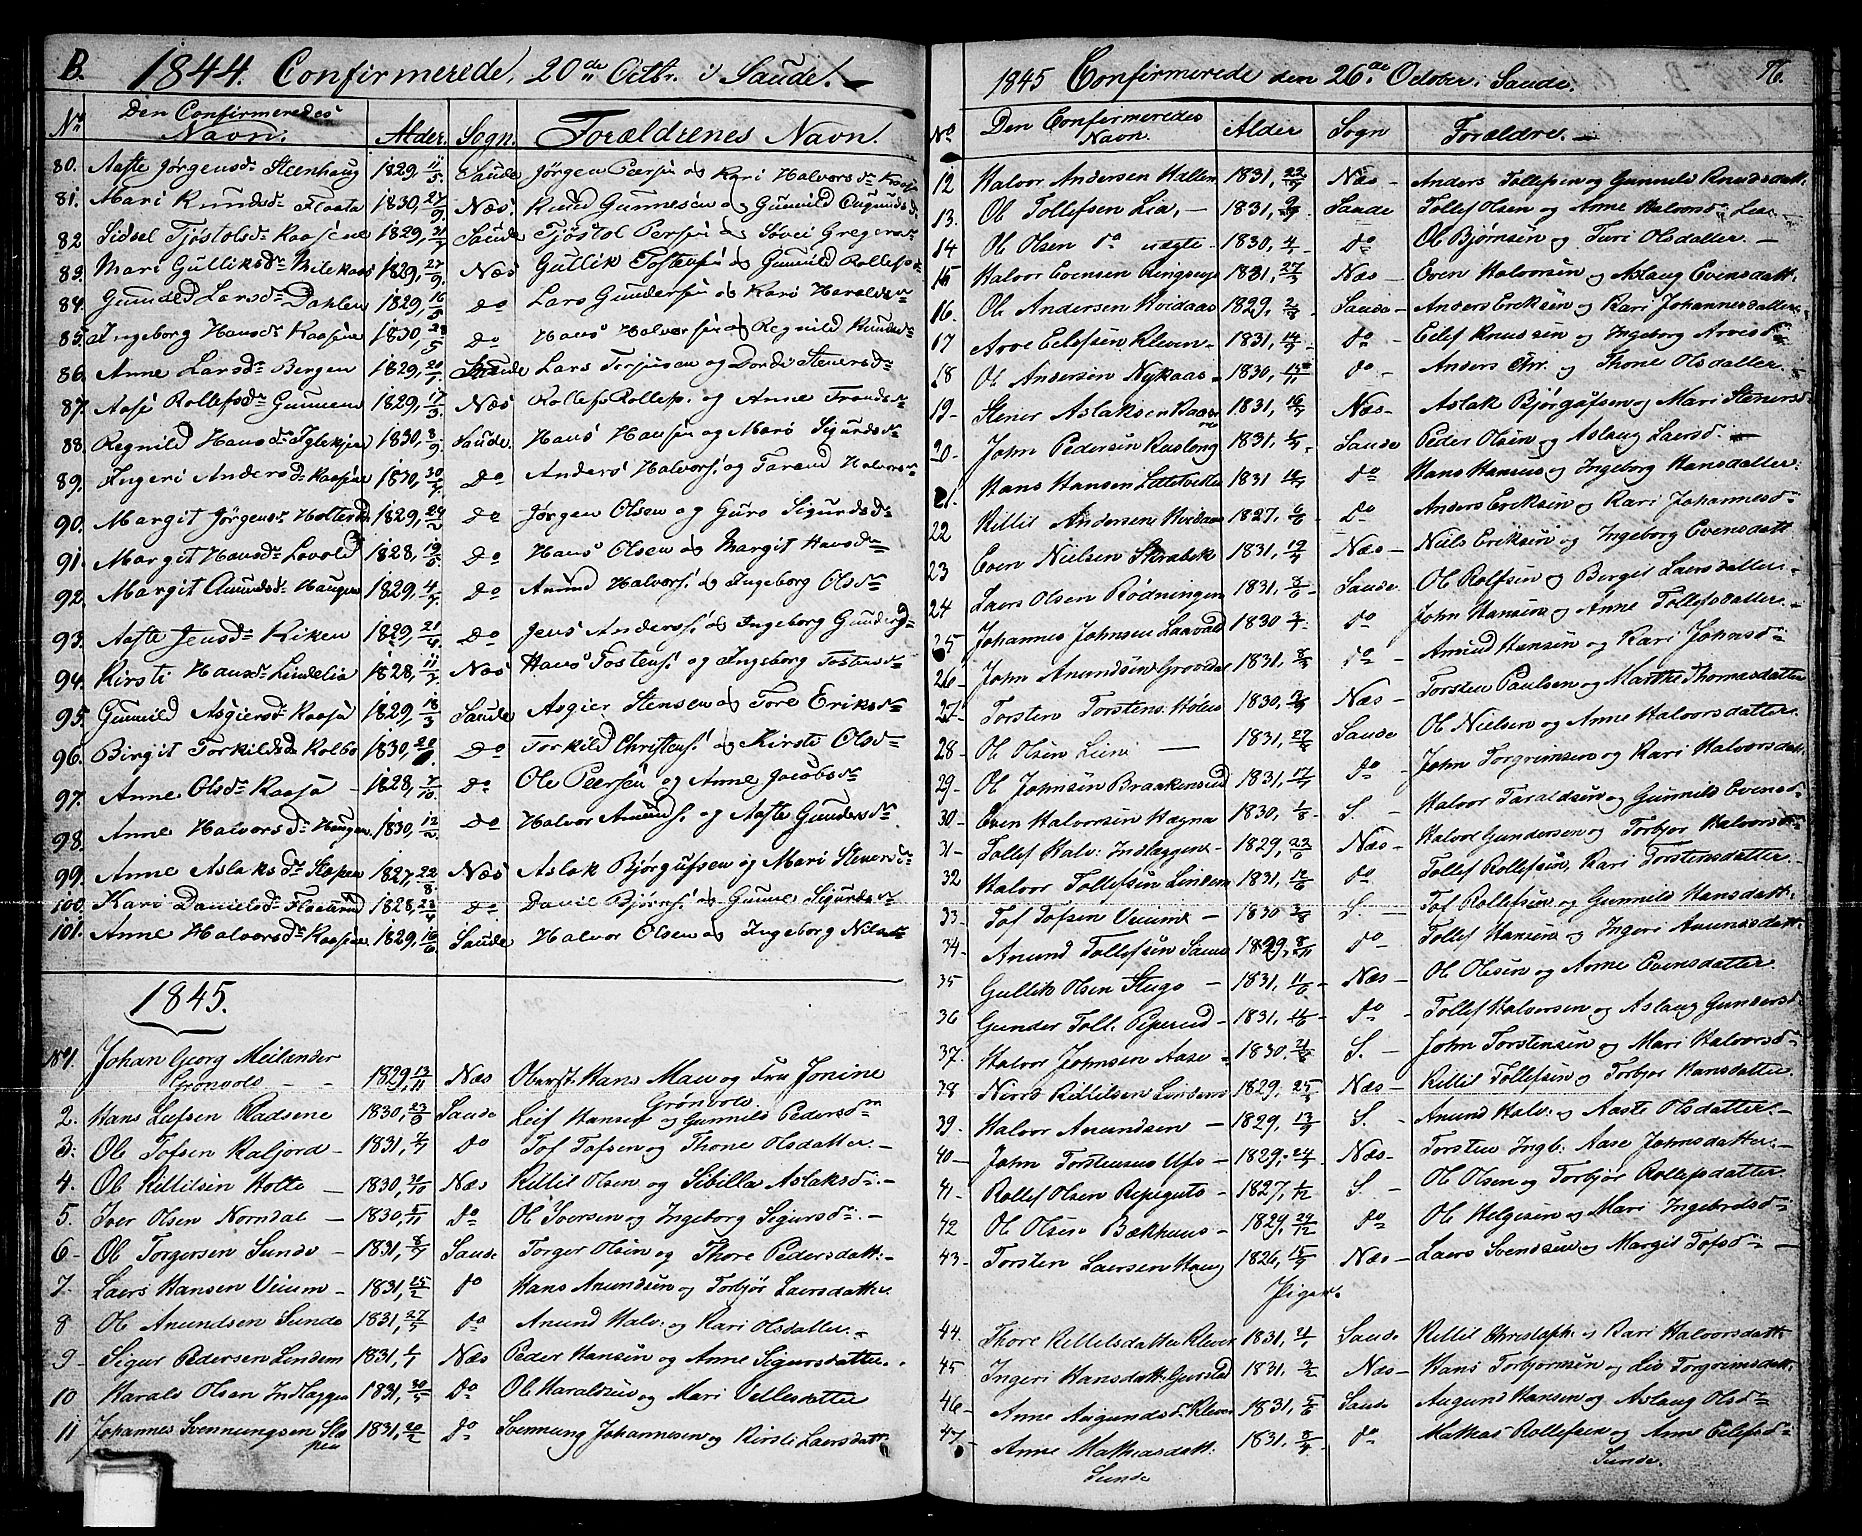 B. 1844. Confirmerede, 20de Octbr. i Saude.
Nr Den Confirmeredes Navn. Alder. Sogn. Forældrenes Navn.
80. Aaste Jørgensdr Steenhaug 1829, 11/5 Saude Jørgen Peersen og Kari Halvorsdr
81. Mari Knudsdr Floata 1830, 27/9 Næs. Knud Gunnesen og Gunild Augundsd.
82 Sidsel Tjøstolsdr Kaasene 1829, 31/ Saude Tjøstol Persen og Søvei Gregersdr
83. Mari Gulliksdr 1829, 27/9 Næs Gullik Tostensen og Gunild Rollefsdr
84. Gunild Larsdr Dahlen 1829, 16/5 do Lars Gundersen og Kari Haraldsdr
85. Ingeborg Hansdr Kaasene 1830, 23/5 do Hans Halvorsen og Regnild Knudsdr
86. Anne Larsdr Bergen 1829, 20/1 Saude Lars Terjusen og Dorde Stenersdr
87. Aase Rollefsdr Gunnem 1829, 17/3 Næs Rollef Rollefs. og Anne Trondsdr
88. Regnild Hansdr Iglekjær 1830, 3/9 Saude. Hans Hansen og Mari Sigurdsdr
89. Ingeri Andersdr Kaasene 1830, 30/7 Do Anders Halvors. og Taraud Halvorsdr
90. Margit Jørgensdr 1829, 24/2 do Jørgen Olsen og Guro Sigurdsdr
91. Margit Hansdr Lovold 1828, 19/6 do Hans Olsen og Margit Hansdr
92. Margit Anundsdr Haugen 1829, 4/7 do Anund Halvors. og Ingeborg Olsdr
93. Aaste Jensdr Kiken 1829, 21/4 do Jens Anders. og Ingeborg Gunders
94. Kirsti Hansdr Lindelia 1828, 11/7 Næs Hans Tostens. og Ingeborg Tostensdr
95. Gunnild Asgiersdr Kaasa 1829, 18/3 Saude Asgier Stensen og Tore Eriksdr
96. Birgit Torkildsdr Kolbo 1830, 20/ Do Torkild Christens. og Kirsti Olsdr
97. Anne Olsdr Kaasa 1828, 7/10 do Ole Peersen og Anne Jacobsdr
98. Anne Halvorsdr Haugen 1830, 12/2 do Halvor Anunds. og Aaste Gundersdr
99. Anne Aslaksdr Stapen 1827, 22/8. Næs Aslak Bjørgufsen og Mari Stenersdr
100. Kari Danielsdr 1828, 23/4 do Daniel Bjørns. og Gunne Sigurdsdr
101. Anne Halvorsdr Kaasene 1829, 16/6 Saude Halvor Olsen og Ingeborg Nilsdr
1845.
No 1. Johan Georg Meilender
Grønvold 1829, 13/11 Næs Oberst. Hans Mau og Fru Jonine
Grønvold.
2. Hans Leifsen Radsene 1830, 23/9 Saude Leif Hansen og Gunnild Pedersdr
3. Ole Tofsen Kaljord 1831, 7/7 do Tof Tofsen og Thone Olsdatter
4. Ole Killilsen Holte 1830, 30/10 Næs Killil Olsen og Sibilla Aslaksdr
5. Iver Olsen Norndal 1830, 5/11 do Ole Iversen og Ingeborg Sigursdr
6. Ole Torgersen Sunde 1831, 8/7 Saude Torger Olsen og Thore Pedersdatt:
7. Laers Hansen Veium 1831, 25/2 do Hans Anundsen og Torbjør Laersdatter
8 Ole Anundsen Sunde 1831, 27/5 do Anund Halv: og Kari Olsdatter
9 Sigur Pedersen Lindem 1831, 1/7 Næs Peder Hansen og Anne Sigursdatter
10 Harald Olsen Indlaggen 1831, 30/5 do Ole Haraldsen og Mari Vetlesdatter
11 Johannes Svennungsen Stapen 1831, 20/2 do Svennung Johannesen og Kirsti Laersdatt
1845 Confirmerede den 26de October i Saude. 76.
No Den Confirmeredes Navn. Alder Sogn Forældre.
12 Halvor Andersen Hallen 1831, 22/9 Næs Anders Tollefsen og Gunnild Knudsdatt.
13. Ole Tollefsen Lia, 1831, Saude Tollef Olsen og Anne Halvorsdr Lia
14 Ole Olsen do uægte 1830, 4/ do Ole Bjørnsen og Turi Olsdatter.
15 Halvor Evensen Ringsrye 1831, 27/3 Næs Even Halvorsen og Aslaug Evensdatt.
16. Ole Andersen Kvidaas 1829, 2/8 Saude Anders Eriksen og Kari Johannesdatter
17 Arve Eilefsen Kleven 1831, 14/9 do Eilef Knudsen og Ingeborg Arvesdr
18 Ole Andersen Nykaas 1830, 15/11 do Anders Chr. og Thone Olsdatter
19 Stener Aslaksen Kaasene 1831, 16/7 Næs Aslak Bjørgufsen og Mari Stenersdr
20 John Pedersen Rusleng 1831, Saude Peder Olsen og Aslaug Laersd.
21. Hans Hansen 1831 18/7 do Hans Hansen og Ingeborg Hansdatter.
22 Killil Andersen Kvidaas 1827, 6/6 do Anders Eriksen og Kari Johannesd
23 Even Nielsen 1831, 19/4 Næs Niels Eriksen og Ingeborg Evensdatt
24 Laers Olsen Rødningen 1831, 3/6 Saude Ole Rolfsen og Berget Laersdatter.
25 Johannes Johnsen Laavald 1830 3/ do John Hansen og Anne Tollefsdatter.
26 John Anundsen Grovidal 1831, 8/3 do Anund Hansen og Kari Johnsdr
27. Torsten Torstens. Holens 1830, Næs Torsten Paulsen og Marthe Thomasdatter
28 Ole Olsen Lien 1831, 27/8 Saude Ole Nielsen og Anne Halvorsdatter
29 Ole Johnsen Braakensud 1831, 17/7 do John Torgrimsen og Kari Halvorsdatt.
30 Even Halvorsen Hægna 1830, 1/8 S. Halvor Taraldsen og Gunnild Evensdr
31 Tollef Halv: Indlæggene 1829, 22/6 Næs Halvor Gundersen og Torbjør Halvorsdr
32 Halvor Tollefsen Lindem 1831, 12/6 do Tollef Rollefsen, Kari Torstensdatter
33 Tof Tofsen Veium 1830 3/8 S. Tof Rollefsen og Gunnild Hansdatt.
34. Anund Tollefsen 1829, 8/11 do Tollef Hansen og Ingeri Anundsdatt.
35 Gullik Olsen Stugo 1831, 11/6 Næs Ole Olsen og Anne Evensdatter.
36 Gunder Toll: Piperud 1831, 16/6 do Tollef Halvorsen og Aslaug Gundersd
37. Halvor Johnsen Aase 1830, 21/8 S. John Torstensen og Mari Halvorsdr
38 Nirid Killilsen Lindem 1829, 25/ Næs Killil Tollefsen og Torbjør Hansdatter
39. Halvor Anundsen 1829, 13/9 S. Anund Halv: og Aaste Olsdatter.
40 John Torstensen Ufs 1829, 24/7 Næs Torsten Ingb: Aase Johnsdatter
41 Rollef Olsen Ripeguto 1827, 1/12 S. Ole Olsen og Torbjør Rollefsdatter
42 Ole Olsen Bækhuus 1829, 29/12 do Ole Helgesen og Mari Ingebretsdr
43 Torsten Laersen Haug 1826, 15/7 Næs Laers Svendsen og Margit Tofsdr
Piger.
44. Thore Killilsdatter Kleven 1831, 21/1 Saude Killil Christoph: og Kari Halvorsdatt:
45 Ingeri Hansdatt: Gurstad 1831, 3/2 Næs Hans Torbjørnsen og Liv Torgrimsdatt.
46 Anne Augundsdr Kleven 1831, 5/6 Saude Augund Hansen og Aslaug Olsdr
47. Anne Mathiasdatt:
Sunde 1831, 8/4 do Mathias Rollefsen og Anne Eilefsdr
Sunde.